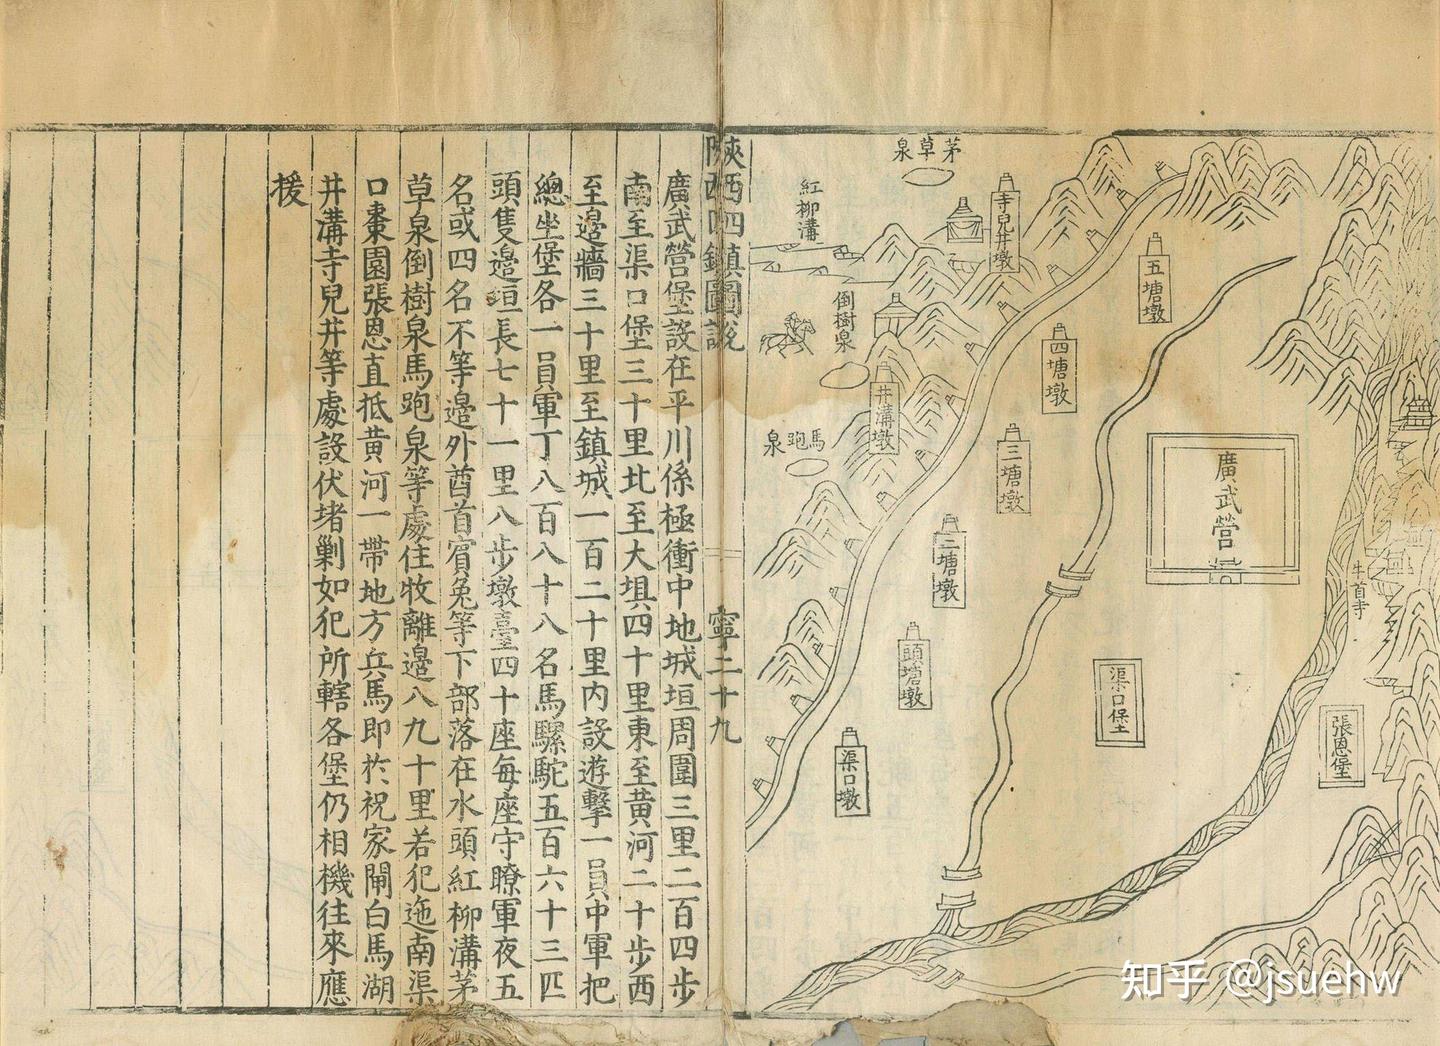 茅草泉
紅柳溝
寺兒井墩
五塘墩
四塘墩
倒樹泉
井溝墩
馬跑泉
三塘墩
二塘墩
頭塘墩
渠口墩
廣武營
牛首寺
渠口堡
張恩堡
陝西四鎮圖說
寧二十九
廣武營堡設在平川係極衝中地城垣周圍三里二百四步
南至渠口堡三十里北至大垻四十里東至黃河二十步西
至邊牆三十里至鎮城一百二十里內設遊擊一員中軍把
總坐堡各一員軍丁八百八十八名馬騾駝五百六十三匹
頭隻邊垣長七十一里八步墩臺四十座每座守瞭軍夜五
名或四名不等邊外酋首賓兔等下部落在水頭紅柳溝茅
草泉倒樹泉馬跑泉等處住牧離邊八九十里若犯迤南渠
口棗園張恩直抵黃河一帶地方兵馬即於祝家閘白馬湖
井溝寺兒井等處設伏堵剿如犯所轄各堡仍相機往來應
援
知乎 @jsuehw